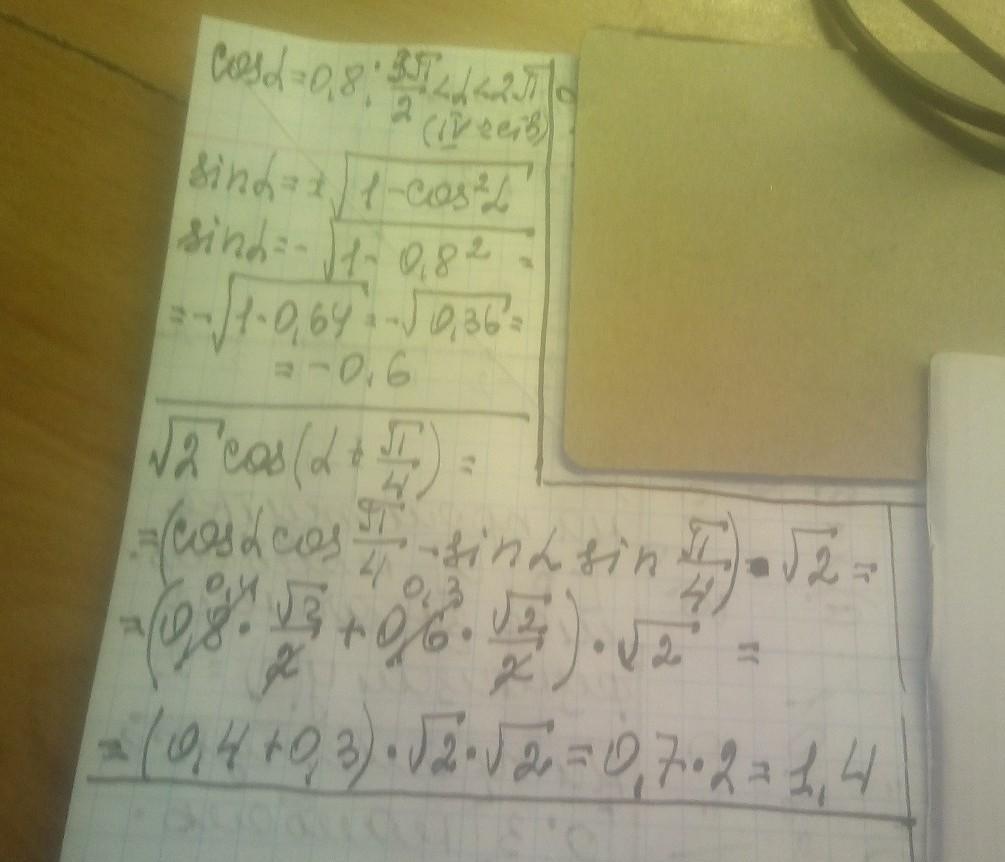 cosα=0,8; 3π/2<α<2π
(IV чверть)
sinα=±√(1-cos²α)
sinα=-√(1-0,8²)=
=-√(1-0,64)=-√(0,36)=
=-0,6
√2 cos(α+π/4)=
=(cosα cos π/4 - sinα sin π/4)·√2=
=(0,8·√2/2+0,6·√2/2)·√2=
=(0,4+0,3)·√2·√2=0,7·2=1,4